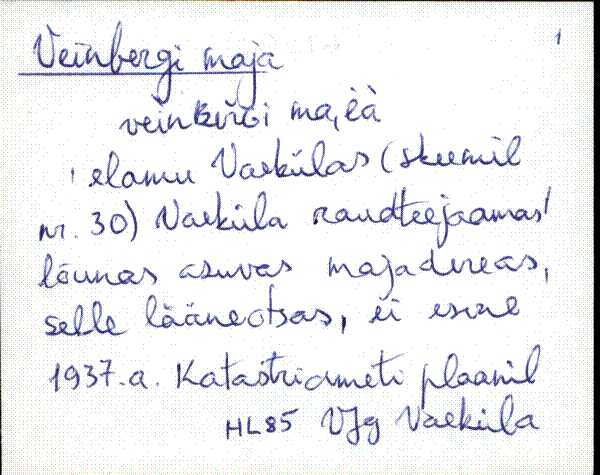 1
Veinbergi maja
elamu Vaeküla's (skeemil
nr. 30) Vaeküla raudteejaamast
lõunas asuvas majadereas,
selle lääneotsas, ei esine
1937.a. Katastriameti plaanil
HL85 VJg Vaeküla